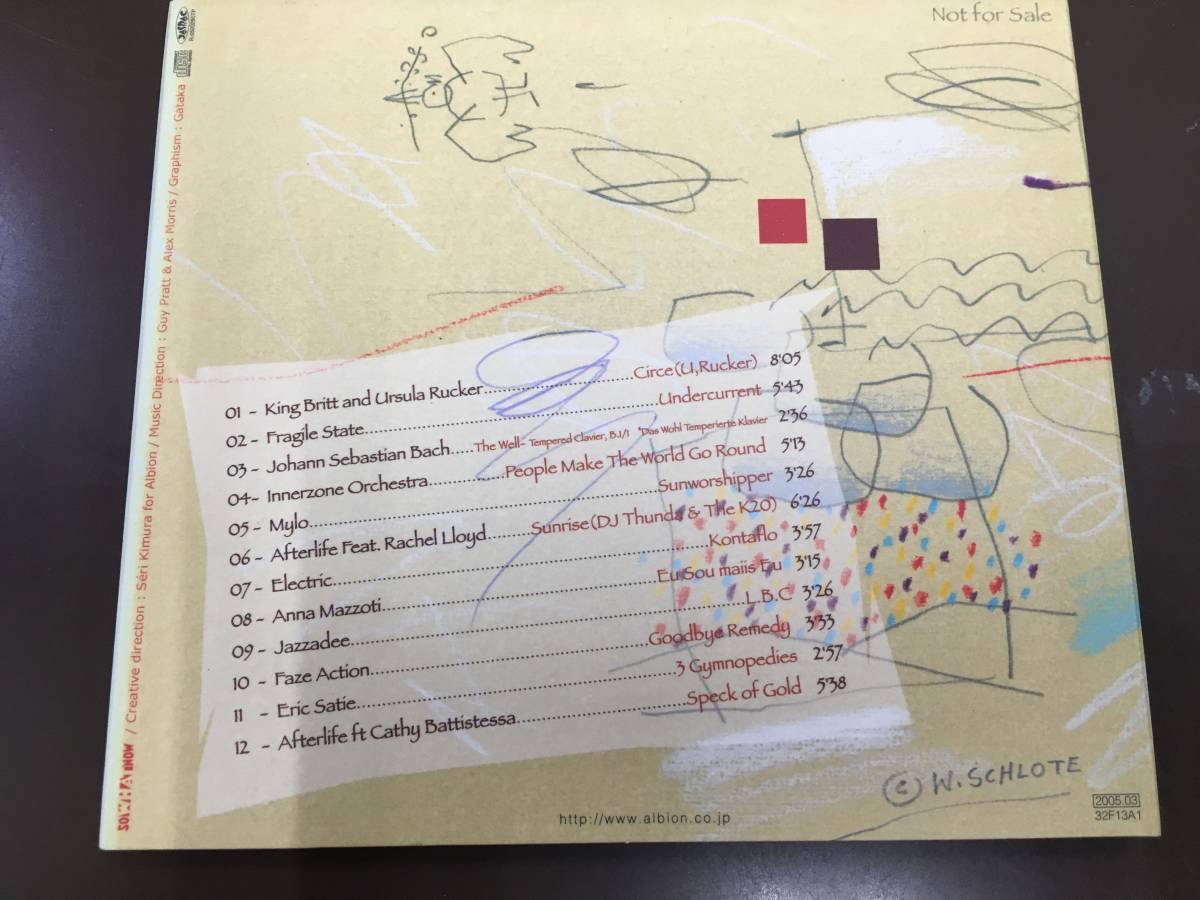 Not for Sale
01 - King Britt and Ursula Rucker..........Circe(U,Rucker) 8'05
02 - Fragile State..........Undercurrent 5'43
03 - Johann Sebastian Bach.....The Well- Tempered Clavier, B.I/1 "Das Wohl Temperierte Klavier 2'36
04- Innerzone Orchestra..........People Make The World Go Round 5'13
05 - Mylo..........Sunworshipper 3'26
06 - Afterlife Feat. Rachel Lloyd..........Sunrise(DJ Thunda & The K2O) 6'26
07 - Electric..........Kontaflo 3'57
08 - Anna Mazzoti..........Eu Sou maiis Eu 3'15
09 - Jazzadee..........L.B.C 3'26
10 - Faze Action..........Goodbye Remedy 3'33
11 - Eric Satie..........3 Gymnopedies 2'57
12 - Afterlife ft Cathy Battistessa..........Speck of Gold 5'38
© W. SCHLOTE
http://www.albion.co.jp
2005.03
32F13A1
/ Creative direction : Séri Kimura for Albion / Music Direction : Guy Pratt & Alex Morris / Graphism : Gataka